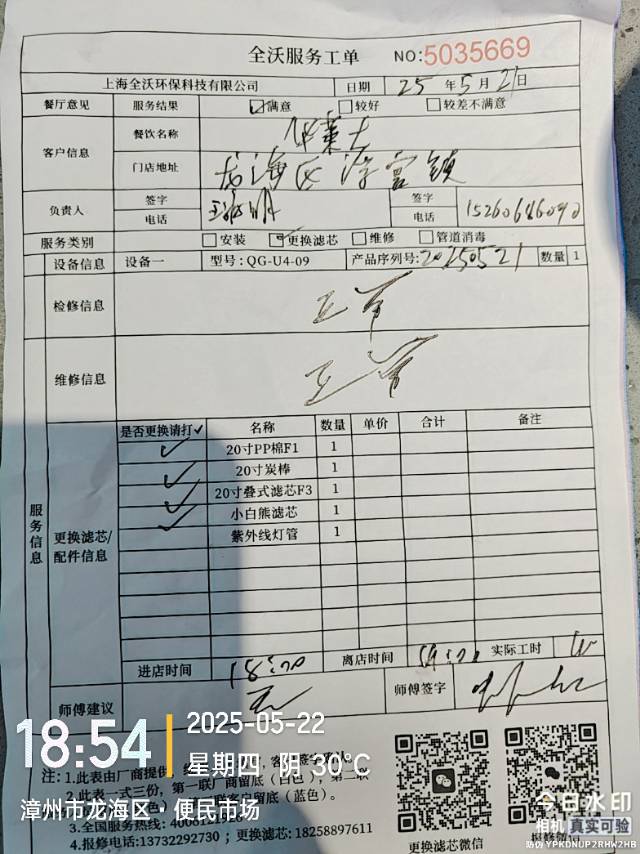 全沃服务工单 NO:5035669
上海全沃环保科技有限公司 日期 25 年 5 月 21 日
餐厅意见 服务结果 满意 较好 较差不满意
客户信息 餐饮名称 华莱士
门店地址 龙海区浮宫镇
负责人 签字 签字
电话 电话 15260646090
服务类别 安装 更换滤芯 维修 管道消毒
设备信息 设备一 型号:QG-U4-09 产品序列号:20250521 数量 1
检修信息 正常
维修信息 正常
服务信息
更换滤芯/配件信息
是否更换请打✓ 名称 数量 单价 合计 备注
✓ 20寸PP棉F1 1
✓ 20寸炭棒 1
✓ 20寸叠式滤芯F3 1
✓ 小白熊滤芯 1
紫外线灯管 1
进店时间 18:00 离店时间 实际工时
师傅建议 师傅签字
18:54 2025-05-22
星期四 阴 30°C
漳州市龙海区·便民市场
注:1.此表由厂商提供,
2.此表一式三份,第一联厂商留底(白色),第二联
(蓝色)。
3.全国服务热线:
4.报修电话:13732292730;更换滤芯:18258897611
更换滤芯微信 报修微信
今日水印
相机 真实可验
防伪 YPKDNUP2RHW2HB